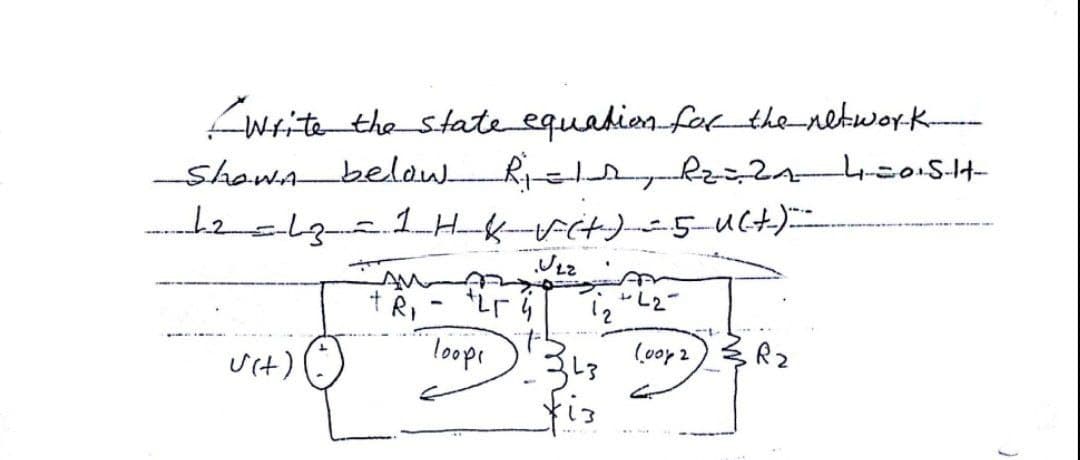 Write the state equation for the network
shown below R1=1Ω, R2=2Ω L1=0.5H
L2=L3=1H & v(t)=5u(t)
VL2
+ R1 - +L1- i1 i2 +L2-
v(t) + - loop1 + - L3 loop2 R2
i3